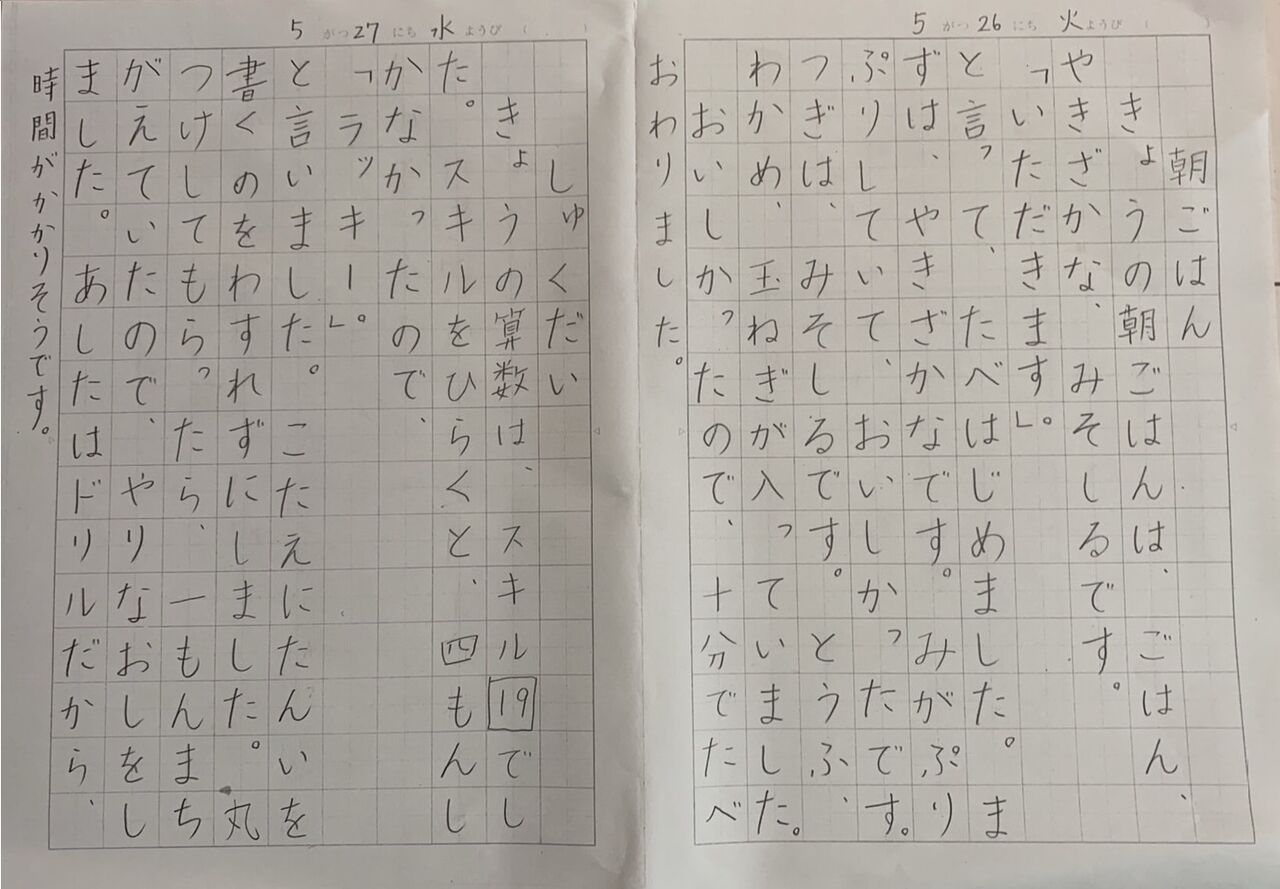 5がつ26にち火ようび（　）
朝ごはん
きょうの朝ごはんは、ごはん、
やきざかな、みそしるです。
「いただきます」。
と言って、たべはじめました。ま
ずは、やきざかなです。みがぷり
ぷりしていて、おいしかったです。
つぎは、みそしるです。とうふ、
わかめ、玉ねぎが入っていました。
おいしかったので、十分でたべ
おわりました。
5がつ27にち水ようび（　）
しゅくだい
きょうの算数は、スキル19でし
た。スキルをひらくと、四もんし
かなかったので、
「ラッキー」。
と言いました。こたえにたんいを
書くのをわすれずにしました。丸
つけしてもらったら、一もんまち
がえていたので、やりなおしをし
ました。あしたはドリルだから、
時間がかかりそうです。